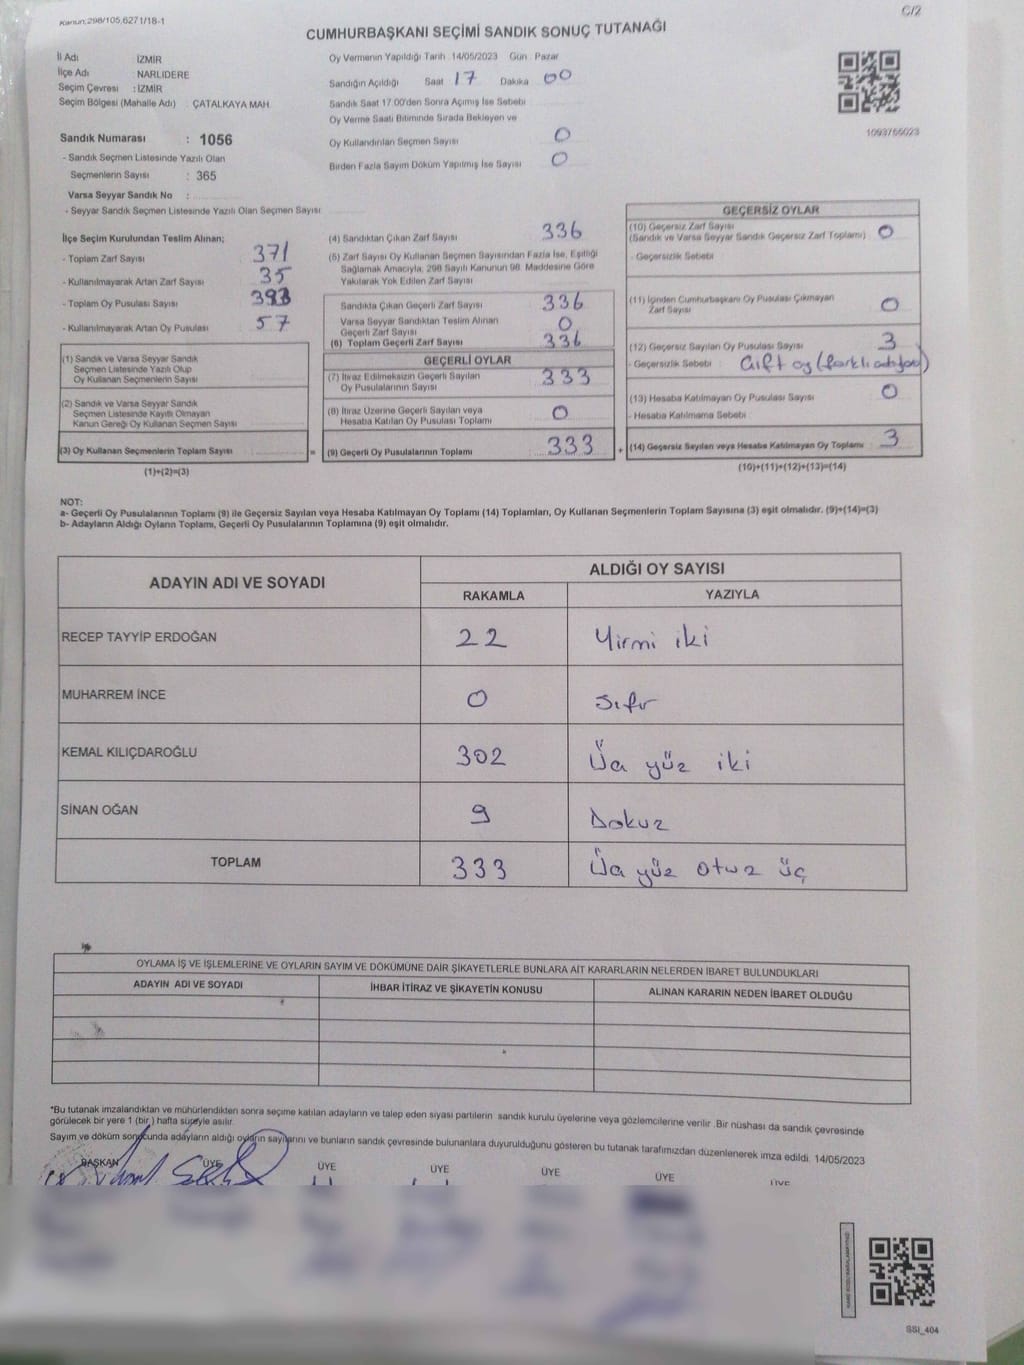 Kanun:298/105,6271/18-1
C/2
CUMHURBAŞKANI SEÇİMİ SANDIK SONUÇ TUTANAĞI
İl Adı : İZMİR
İlçe Adı : NARLIDERE
Seçim Çevresi : İZMİR
Seçim Bölgesi (Mahalle Adı) : ÇATALKAYA MAH.
Sandık Numarası : 1056
- Sandık Seçmen Listesinde Yazılı Olan
Seçmenlerin Sayısı : 365
Varsa Seyyar Sandık No :
- Seyyar Sandık Seçmen Listesinde Yazılı Olan Seçmen Sayısı
Oy Vermenin Yapıldığı Tarih 14/05/2023 Gün Pazar
Sandığın Açıldığı Saat 17 Dakika 00
Sandık Saat 17.00'den Sonra Açımış İse Sebebi
Oy Verme Saati Bitiminde Sırada Bekleyen ve
Oy Kullandırılan Seçmen Sayısı 0
Birden Fazla Sayım Döküm Yapılmış İse Sayısı 0
1093766023
İlçe Seçim Kurulundan Teslim Alınan;
- Toplam Zarf Sayısı 371
- Kullanılmayarak Artan Zarf Sayısı 35
- Toplam Oy Pusulası Sayısı 393
- Kullanılmayarak Artan Oy Pusulası 57
(1) Sandık ve Varsa Seyyar Sandık
Seçmen Listesinde Yazılı Olup
Oy Kullanan Seçmenlerin Sayısı
(2) Sandık ve Varsa Seyyar Sandık
Seçmen Listesinde Kayıtlı Olmayan
Kanun Gereği Oy Kullanan Seçmen Sayısı
(3) Oy Kullanan Seçmenlerin Toplam Sayısı =
(1)+(2)=(3)
(4) Sandıktan Çıkan Zarf Sayısı 336
(5) Zarf Sayısı Oy Kullanan Seçmen Sayısından Fazla İse, Eşitliği
Sağlamak Amacıyla, 298 Sayılı Kanunun 98. Maddesine Göre
Yakılarak Yok Edilen Zarf Sayısı
Sandıkta Çıkan Geçerli Zarf Sayısı 336
Varsa Seyyar Sandıktan Teslim Alınan
Geçerli Zarf Sayısı 0
(6) Toplam Geçerli Zarf Sayısı 336
GEÇERLİ OYLAR
(7) İtiraz Edilmeksizin Geçerli Sayılan
Oy Pusulalarının Sayısı 333
(8) İtiraz Üzerine Geçerli Sayılan veya
Hesaba Katılan Oy Pusulası Toplamı 0
(9) Geçerli Oy Pusulalarının Toplamı 333 +
GEÇERSİZ OYLAR
(10) Geçersiz Zarf Sayısı
(Sandık ve Varsa Seyyar Sandık Geçersiz Zarf Toplamı) 0
- Geçersizlik Sebebi
(11) İçinden Cumhurbaşkanı Oy Pusulası Çıkmayan
Zarf Sayısı 0
(12) Geçersiz Sayılan Oy Pusulası Sayısı 3
- Geçersizlik Sebebi Çift oy (farklı
(13) Hesaba Katılmayan Oy Pusulası Sayısı 0
- Hesaba Katılmama Sebebi
(14) Geçersiz Sayılan veya Hesaba Katılmayan Oy Toplamı 3
(10)+(11)+(12)+(13)=(14)
NOT:
a- Geçerli Oy Pusulalarının Toplamı (9) ile Geçersiz Sayılan veya Hesaba Katılmayan Oy Toplamı (14) Toplamları, Oy Kullanan Seçmenlerin Toplam Sayısına (3) eşit olmalıdır. (9)+(14)=(3)
b- Adayların Aldığı Oyların Toplamı, Geçerli Oy Pusulalarının Toplamına (9) eşit olmalıdır.
ADAYIN ADI VE SOYADI
ALDIĞI OY SAYISI
RAKAMLA YAZIYLA
RECEP TAYYİP ERDOĞAN 22 Yirmi iki
MUHARREM İNCE 0 Sıfır
KEMAL KILIÇDAROĞLU 302 Üç yüz iki
SİNAN OĞAN 9 Dokuz
TOPLAM 333 Üç yüz otuz üç
OYLAMA İŞ VE İŞLEMLERİNE VE OYLARIN SAYIM VE DÖKÜMÜNE DAİR ŞİKAYETLERLE BUNLARA AİT KARARLARIN NELERDEN İBARET BULUNDUKLARI
ADAYIN ADI VE SOYADI İHBAR İTİRAZ VE ŞİKAYETİN KONUSU ALINAN KARARIN NEDEN İBARET OLDUĞU
*Bu tutanak imzalandıktan ve mühürlendikten sonra seçime katılan adayların ve talep eden siyasi partilerin sandık kurulu üyelerine veya gözlemcilerine verilir .Bir nüshası da sandık çevresinde
görülecek bir yere 1 (bir ) hafta süreyle asılır.
Sayım ve döküm sonucunda adayların aldığı oyların sayılarını ve bunların sandık çevresinde bulunanlara duyurulduğunu gösteren bu tutanak tarafımızdan düzenlenerek imza edildi. 14/05/2023
BAŞKAN ÜYE ÜYE ÜYE ÜYE ÜYE ÜYE
SSI_404